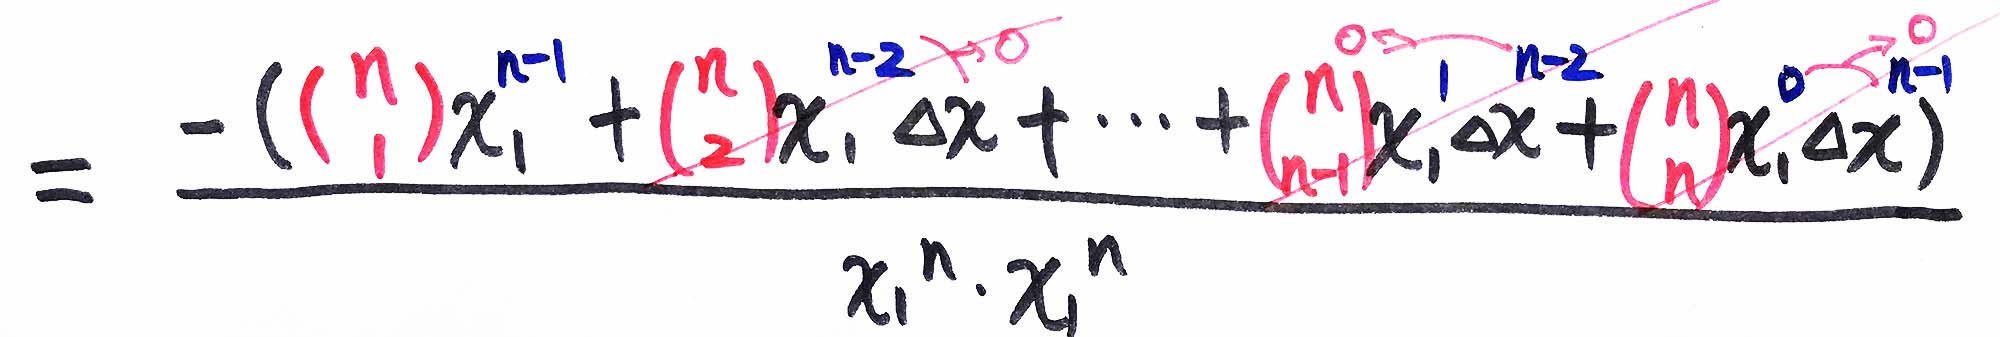 = \frac{-\left(\binom{n}{1}x_1^{n-1} + \binom{n}{2}x_1^{n-2}\Delta x + \cdots + \binom{n}{n-1}x_1^{1}\Delta x^{n-2} + \binom{n}{n}x_1^{0}\Delta x^{n-1}\right)}{x_1^n \cdot x_1^n}
→0
0←
→0